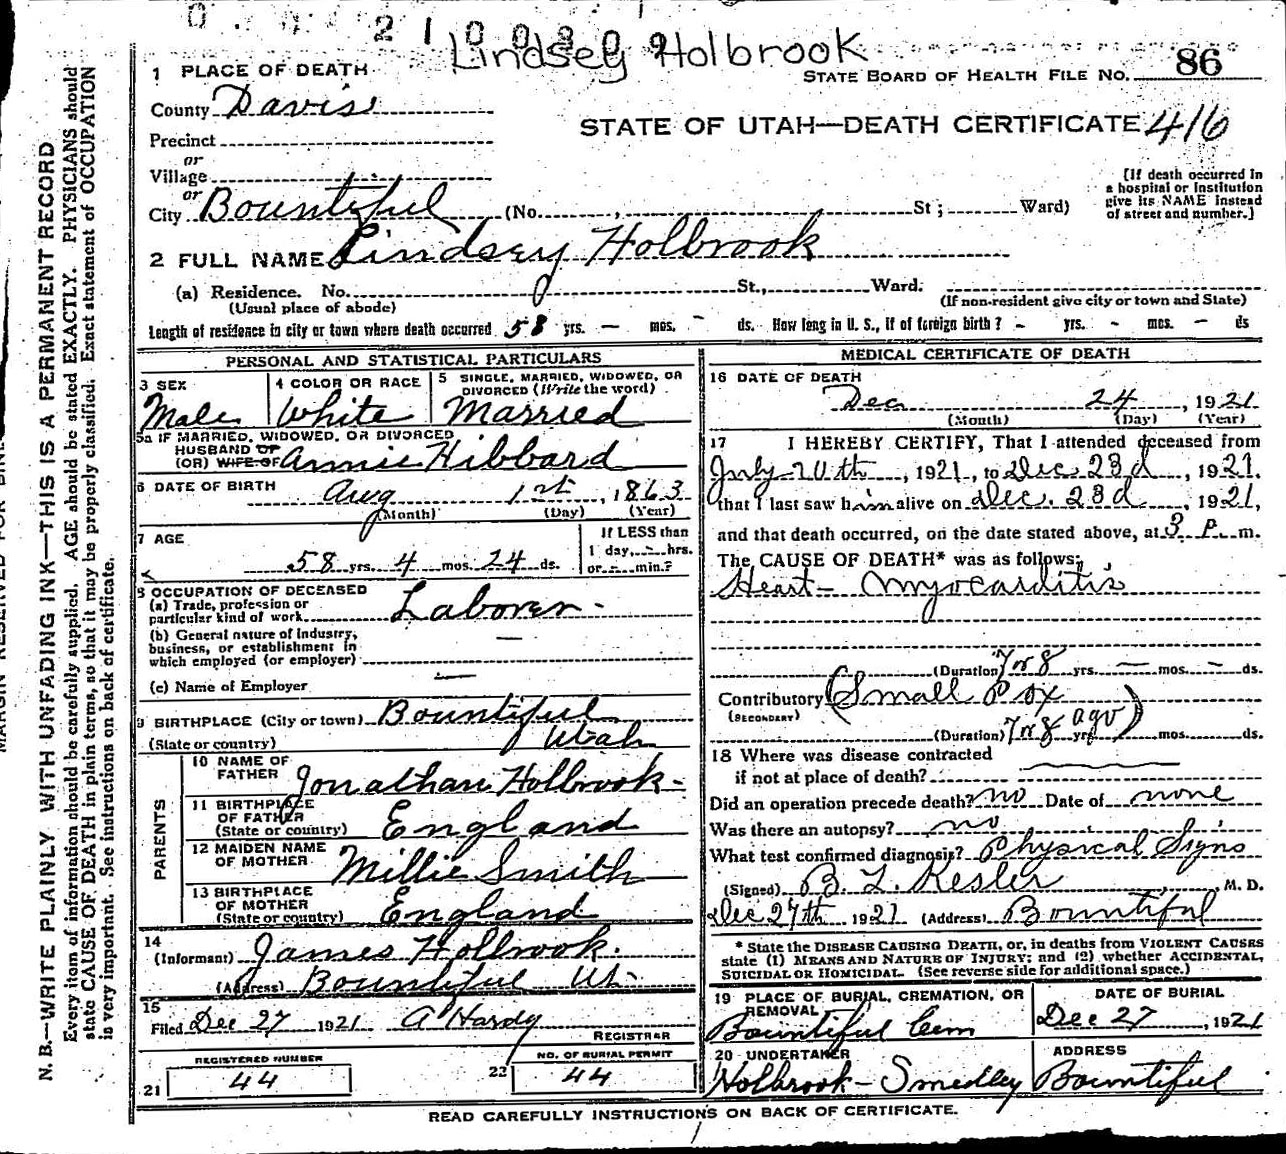 2100809
Lindsey Holbrook
1 PLACE OF DEATH
STATE BOARD OF HEALTH FILE NO. 86
County Davis
STATE OF UTAH—DEATH CERTIFICATE 416
Precinct
or
Village
or
City Bountiful (No. , St; Ward)
(If death occurred in
a hospital or institution
give its NAME instead
of street and number.)
2 FULL NAME Lindsey Holbrook
(a) Residence. No. St., Ward.
(Usual place of abode) (If non-resident give city or town and State)
Length of residence in city or town where death occurred 58 yrs. — mos. - ds. How long in U. S., if of foreign birth? - yrs. - mos. - ds
PERSONAL AND STATISTICAL PARTICULARS
3 SEX Male
4 COLOR OR RACE White
5 SINGLE, MARRIED, WIDOWED, OR
DIVORCED (Write the word)
Married
5a IF MARRIED, WIDOWED, OR DIVORCED
HUSBAND OF
(OR) WIFE OF Annie Hibbard
6 DATE OF BIRTH Aug 1st, 1863
(Month) (Day) (Year)
7 AGE
58 yrs. 4 mos. 24 ds.
If LESS than
1 day, - hrs.
or - min.?
8 OCCUPATION OF DECEASED
(a) Trade, profession or
particular kind of work Laborer -
(b) General nature of industry,
business, or establishment in
which employed (or employer) —
(c) Name of Employer —
9 BIRTHPLACE (City or town) Bountiful
(State or country) Utah
PARENTS
10 NAME OF
FATHER Jonathan Holbrook -
11 BIRTHPLACE
OF FATHER
(State or country) England
12 MAIDEN NAME
OF MOTHER Millie Smith
13 BIRTHPLACE
OF MOTHER
(State or country) England
14
(Informant) James Holbrook.
(Address) Bountiful Ut-
15
Filed Dec 27 1921 A Hardy
REGISTRAR
REGISTERED NUMBER
21 44
NO. OF BURIAL PERMIT
22 44
MEDICAL CERTIFICATE OF DEATH
16 DATE OF DEATH
Dec 24, 1921
(Month) (Day) (Year)
17 I HEREBY CERTIFY, That I attended deceased from
July 20th, 1921, to Dec. 23d, 1921.
that I last saw him alive on Dec. 23d, 1921,
and that death occurred, on the date stated above, at 3 P. m.
The CAUSE OF DEATH* was as follows:
Heart - Myocarditis
(Duration) 7 or 8 yrs. — mos. - ds.
Contributory (Small Pox
(SECONDARY)
(Duration) 7 or 8 yrs ago) mos. ds.
18 Where was disease contracted
if not at place of death?
Did an operation precede death? no Date of none
Was there an autopsy? no
What test confirmed diagnosis? Physical Signs
(Signed) B. L. Kesler, M. D.
Dec 27th 1921 (Address) Bountiful
* State the DISEASE CAUSING DEATH, or, in deaths from VIOLENT CAUSES
state (1) MEANS AND NATURE OF INJURY; and (2) whether ACCIDENTAL,
SUICIDAL OR HOMICIDAL. (See reverse side for additional space.)
19 PLACE OF BURIAL, CREMATION, OR
REMOVAL
Bountiful Cem
DATE OF BURIAL
Dec 27, 1921
20 UNDERTAKER
Holbrook - Smedley
ADDRESS
Bountiful
READ CAREFULLY INSTRUCTIONS ON BACK OF CERTIFICATE.
N. B.—WRITE PLAINLY WITH UNFADING INK—THIS IS A PERMANENT RECORD
Every item of information should be carefully supplied. AGE should be stated EXACTLY. PHYSICIANS should
state CAUSE OF DEATH in plain terms, so that it may be properly classified. Exact statement of OCCUPATION
is very important. See instructions on back of certificate.
MARGIN RESERVED FOR